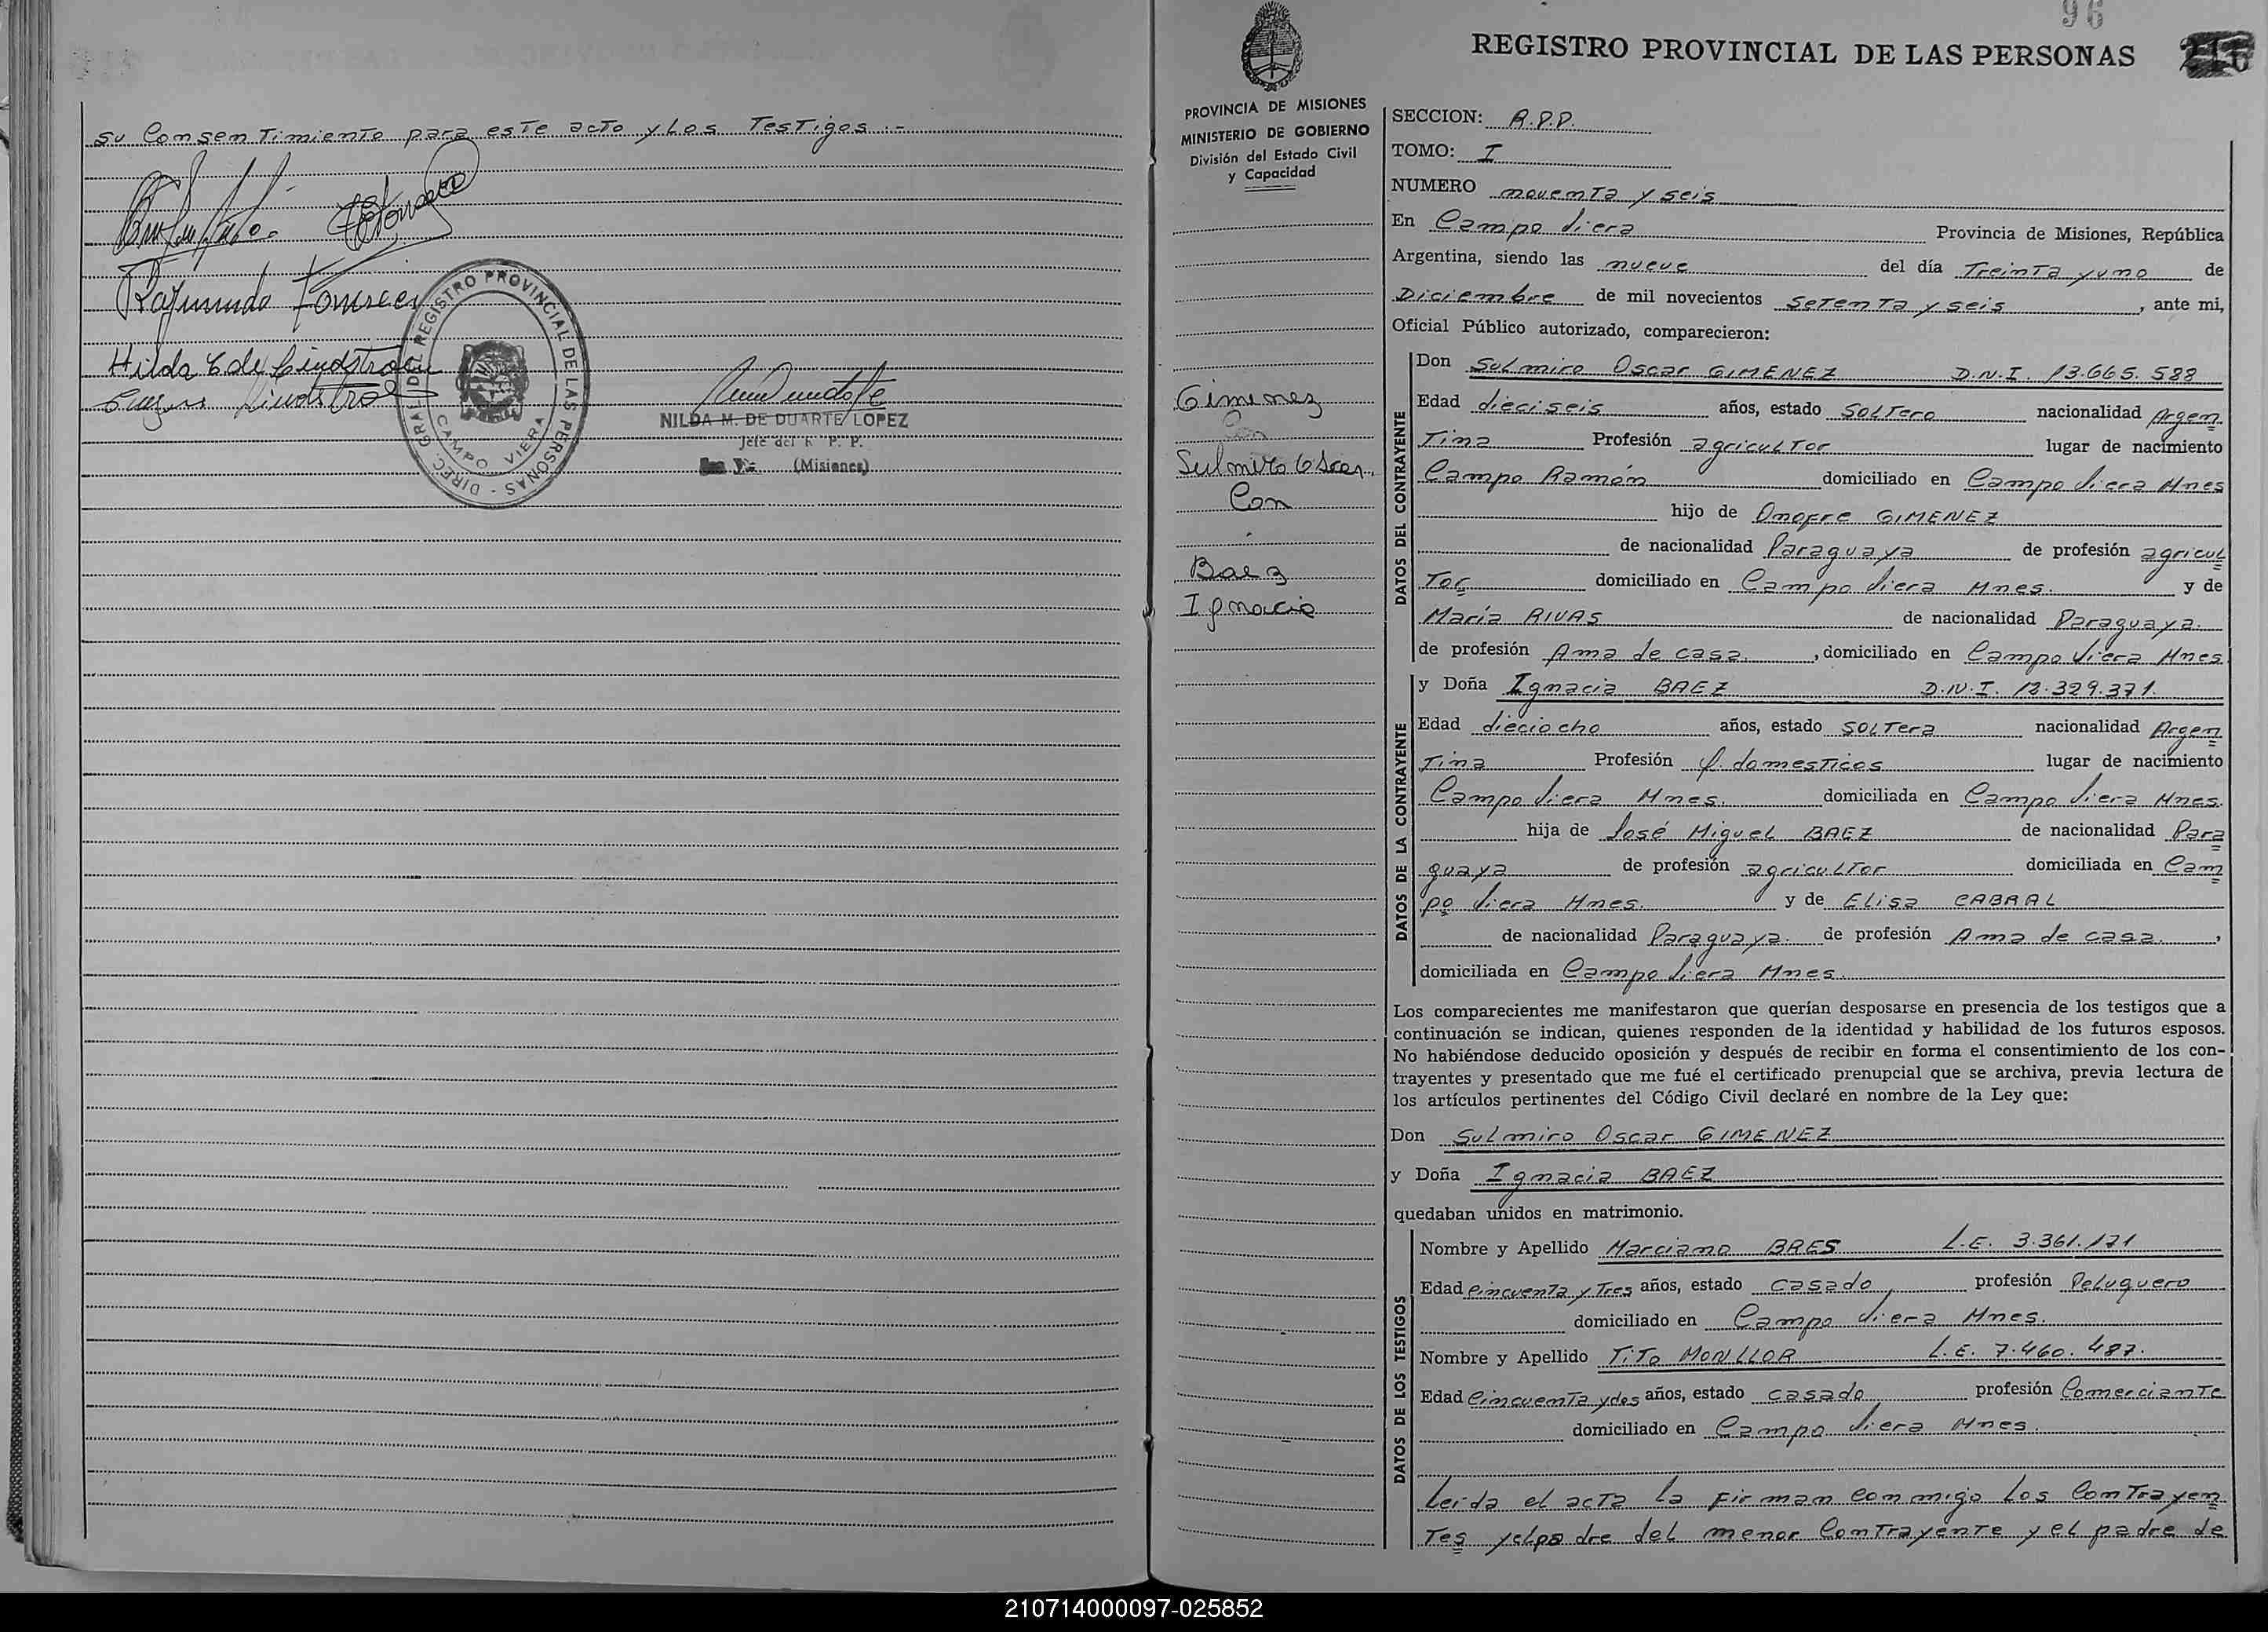 su Consentimiento para este acto y Los Testigos.-
Raymundo Fonseca
Hilda C de Lindstron
Lindstron
DIREC. GRAL. DEL REGISTRO PROVINCIAL DE LAS PERSONAS -
CAMPO VIERA
NILDA M. DE DUARTE LOPEZ
Jefe del R. P. P.
(Misiones)
96
REGISTRO PROVINCIAL DE LAS PERSONAS
PROVINCIA DE MISIONES
MINISTERIO DE GOBIERNO
División del Estado Civil
y Capacidad
Gimenez
Sulmiro Oscar
Con
Baez
Ignacia
SECCION: R.P.P.
TOMO: I
NUMERO noventa y seis
En Campo Viera Provincia de Misiones, República
Argentina, siendo las nueve del día Treinta y uno de
Diciembre de mil novecientos setenta y seis, ante mi,
Oficial Público autorizado, comparecieron:
DATOS DEL CONTRAYENTE
Don Sulmiro Oscar GIMENEZ D.N.I. 13.665.588
Edad dieciseis años, estado Soltero nacionalidad Argen
Tina Profesión agricultor lugar de nacimiento
Campo Ramón domiciliado en Campo Viera Mnes
hijo de Onofre GIMENEZ
de nacionalidad Paraguaya de profesión agricul
Tor domiciliado en Campo Viera Mnes. y de
María RIVAS de nacionalidad Paraguaya.
de profesión Ama de casa., domiciliado en Campo Viera Mnes
DATOS DE LA CONTRAYENTE
y Doña Ignacia BAEZ D.N.I. 12.329.371.
Edad dieciocho años, estado Soltera nacionalidad Argen
Tina Profesión Q. domesticos lugar de nacimiento
Campo Viera Mnes. domiciliada en Campo Viera Mnes.
hija de José Miguel BAEZ de nacionalidad Para
guaya de profesión agricultor domiciliada en Cam
po Viera Mnes. y de Elisa CABRAL
de nacionalidad Paraguaya. de profesión Ama de casa.,
domiciliada en Campo Viera Mnes.
Los comparecientes me manifestaron que querían desposarse en presencia de los testigos que a
continuación se indican, quienes responden de la identidad y habilidad de los futuros esposos.
No habiéndose deducido oposición y después de recibir en forma el consentimiento de los con-
trayentes y presentado que me fué el certificado prenupcial que se archiva, previa lectura de
los artículos pertinentes del Código Civil declaré en nombre de la Ley que:
Don Sulmiro Oscar GIMENEZ
y Doña Ignacia BAEZ
quedaban unidos en matrimonio.
DATOS DE LOS TESTIGOS
Nombre y Apellido Marciano BAES L.E. 3.361.171
Edad Cincuenta y Tres años, estado Casado, profesión Peluquero
domiciliado en Campo Viera Mnes.
Nombre y Apellido Tito MONLLOR L.E. 7.460.487.
Edad Cincuenta y dos años, estado casado profesión Comerciante
domiciliado en Campo Viera Mnes.
Leída el acta la firman conmigo Los Contrayen
Tes y el padre del menor Contrayente y el padre de
210714000097-025852